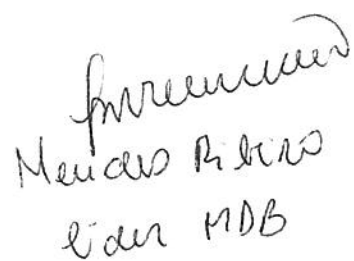 Mendes Ribeiro
líder MDB